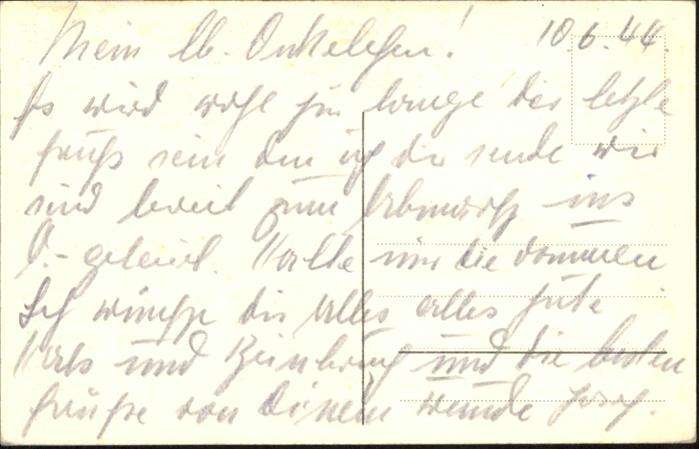 Mein lb. Onkelchen! 10.6.44.
Es wird wohl für lange der letzte
gruß sein den ich dir sende wir
sind bereit zum Abmarsch ins
O.-gebiet. Halte mir die daumen
Ich wünsche dir alles alles gute
Hals und Beinbruch und die besten
grüße von deinem